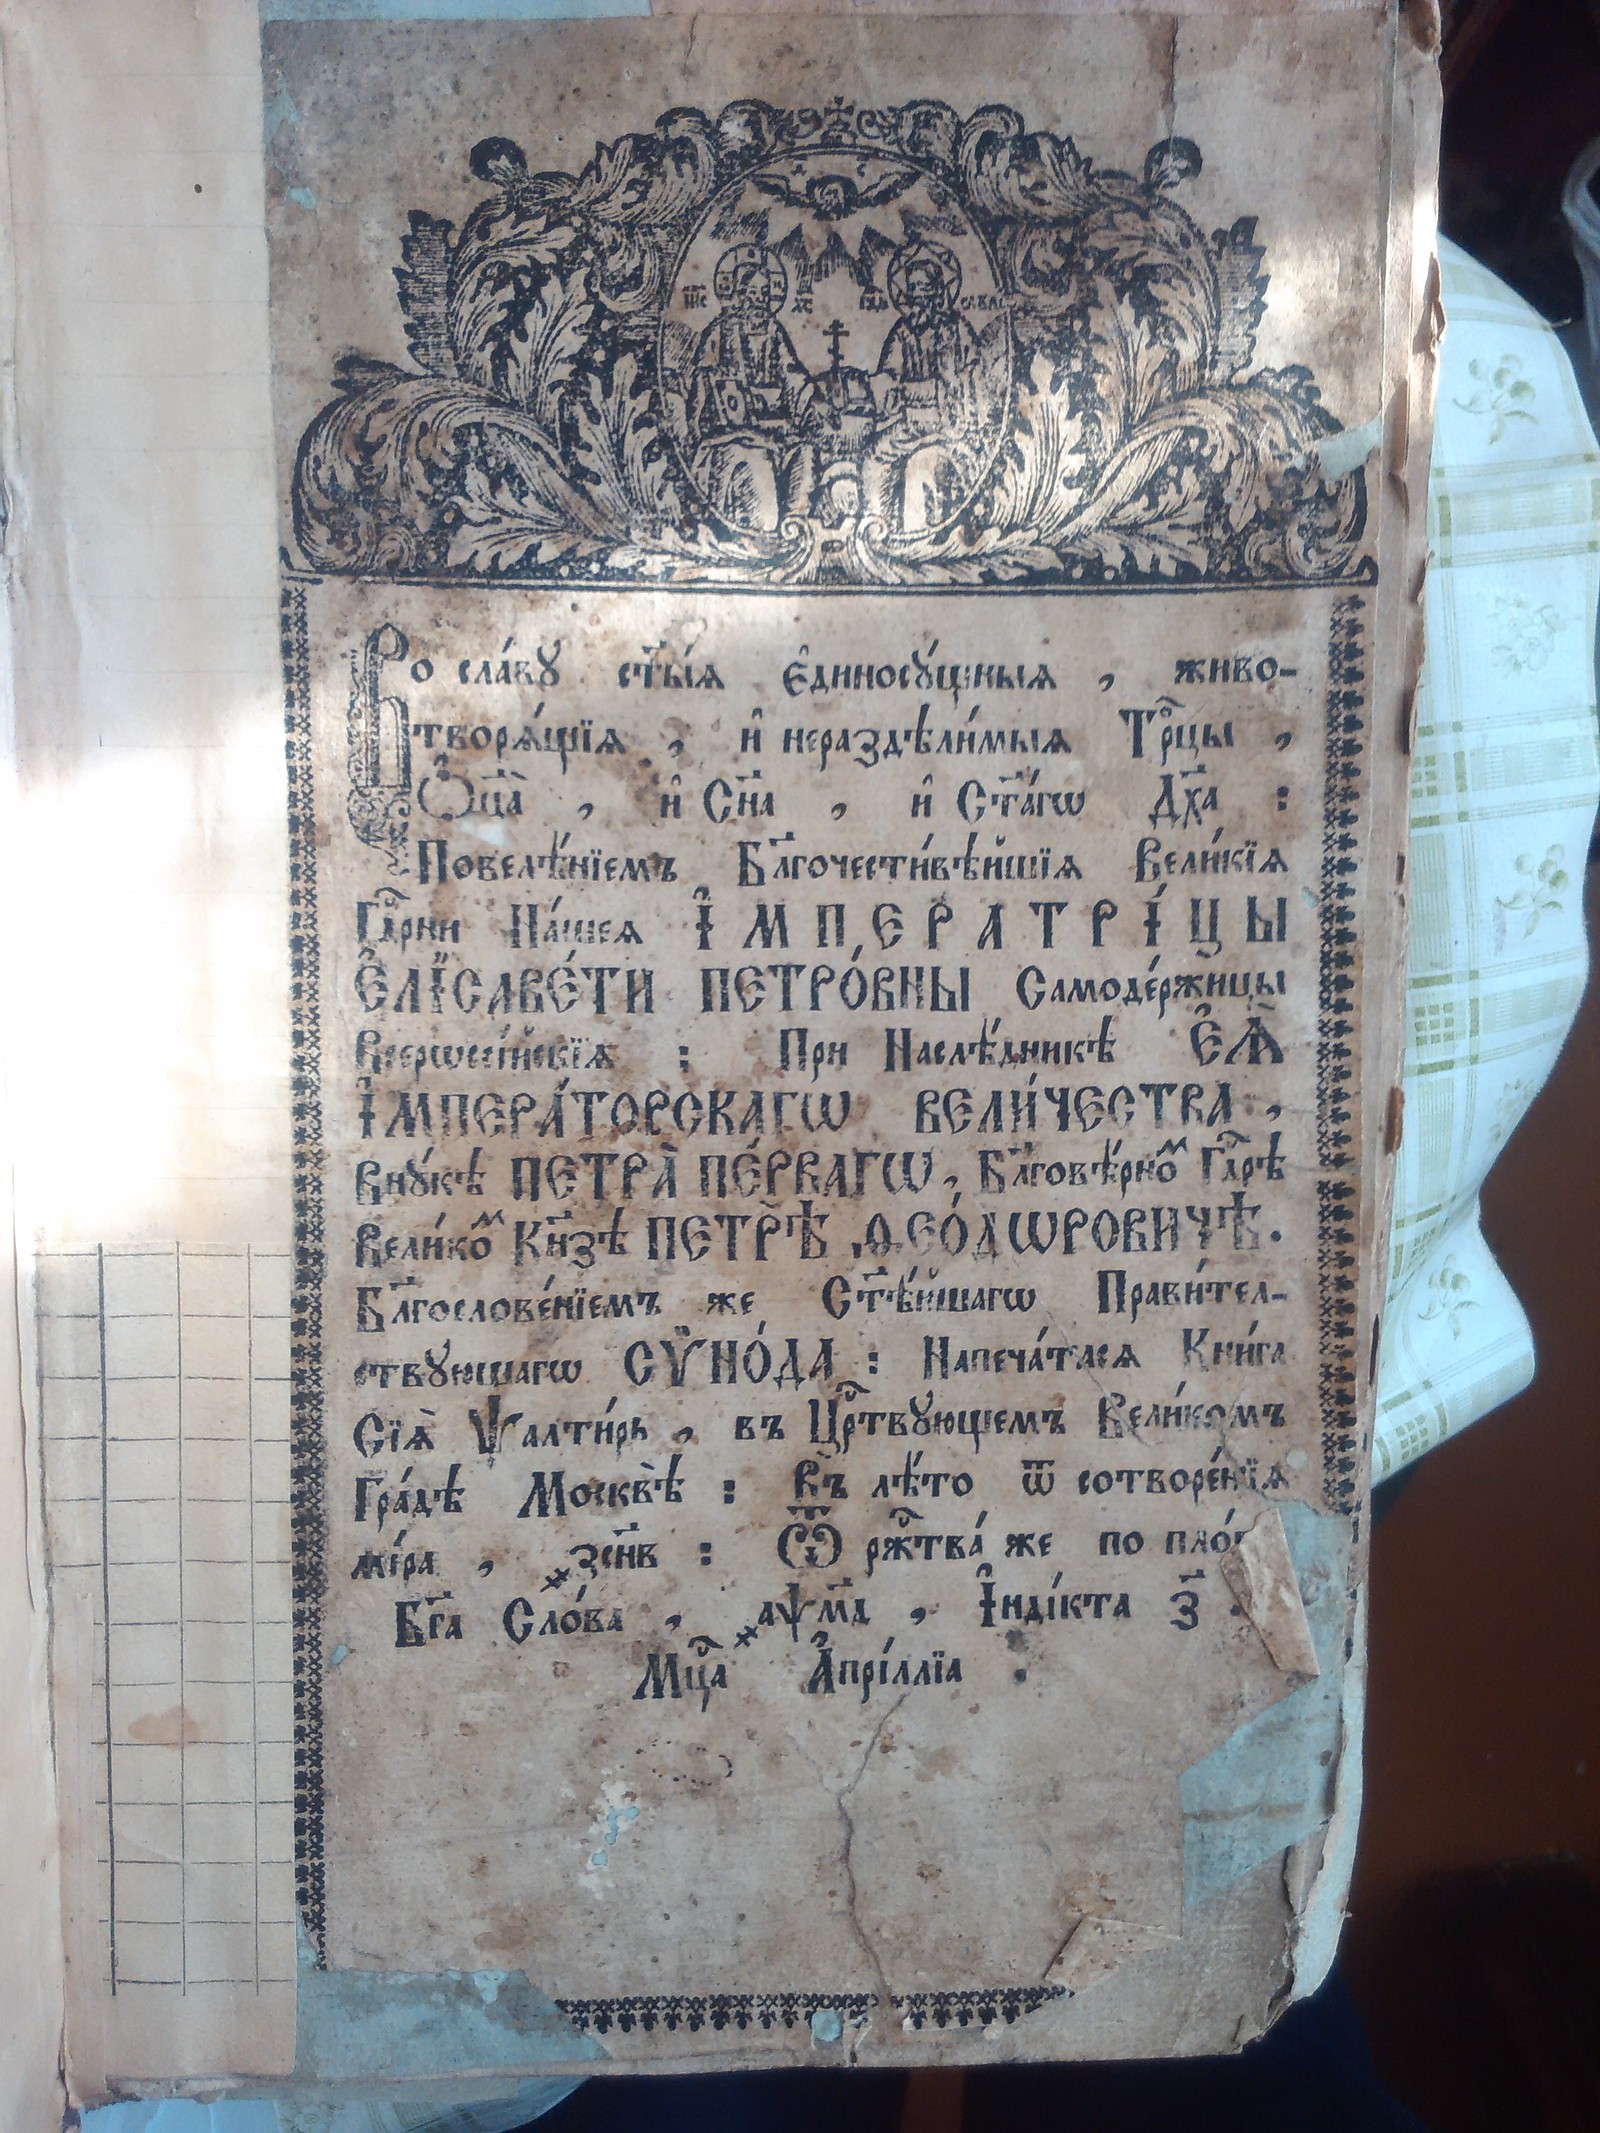 І҃ИС Х҃С Г҃ДЬ САВАѠ
Во сла́вꙋ ст҃ы́ѧ є҆диносꙋ́щныѧ , живо-
творѧ́щїѧ , и҆ нераздѣли́мыѧ Трⷪ҇цы ,
Ѻ҆ц҃а̀ , и҆ Сн҃а , и҆ Ст҃а́гѡ Дх҃а :
Повелѣ́нїемъ Бл҃гочести́вѣйшїѧ Вели́кїѧ
Гдⷭ҇рни На́шеѧ І҆МПЕРАТРІ́ЦЫ
Є҆ЛІСАВЕ́ТИ ПЕТРО́ВНЫ Самоде́ржицы
Всерѡссі́йскїѧ : При Наслѣ́дникѣ Є҆Ѧ̀
І҆МПЕРА́ТОРСКАГѠ ВЕЛИ́ЧЕСТВА ,
Внꙋ́кѣ ПЕТРА̀ ПЕ́РВАГѠ , Бл҃говѣ́рноⷨ Гдⷭ҇рѣ
Вели́коⷨ Кн҃зѣ ПЕТРѢ̀ Ѳ҆ЕО́ДѠРОВИЧѢ .
Бл҃гослове́нїемъ же Ст҃ѣ́йшагѡ Прави́тел-
ствꙋющагѡ СѴНО́ДА : Напеча́тасѧ Кни́га
Сїѧ̀ Ѱалти́рь , въ Црⷭ҇твꙋющемъ Вели́комъ
Гра́дѣ Москвѣ̀ : Въ лѣ́то ѿ сотворе́нїѧ
мі́ра , ҂зсн҃в : Ѿ рж҇тва́ же по пло́
Бг҃а Сло́ва , ҂аѱм҃д , І҆нді́кта з҃ .
Мцⷭ҇а А҆прі́ллїа .